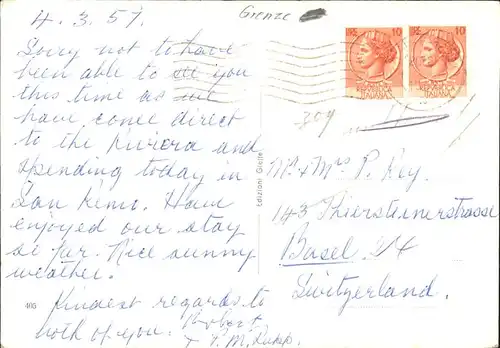 4.3.57.
Grenze
10 10
Sorry not to have
been able to see you
this time as we
have come direct
to the Riviera and
spending today in
San Remo. Have
enjoyed our stay
so far. Nice sunny
weather.
Kindest regards to
both of you. Robert
+ P.M.
405
Edizioni
309
Mr. + Mrs P. Key.
143 Thiersteinerstrasse
Basel
Switzerland.